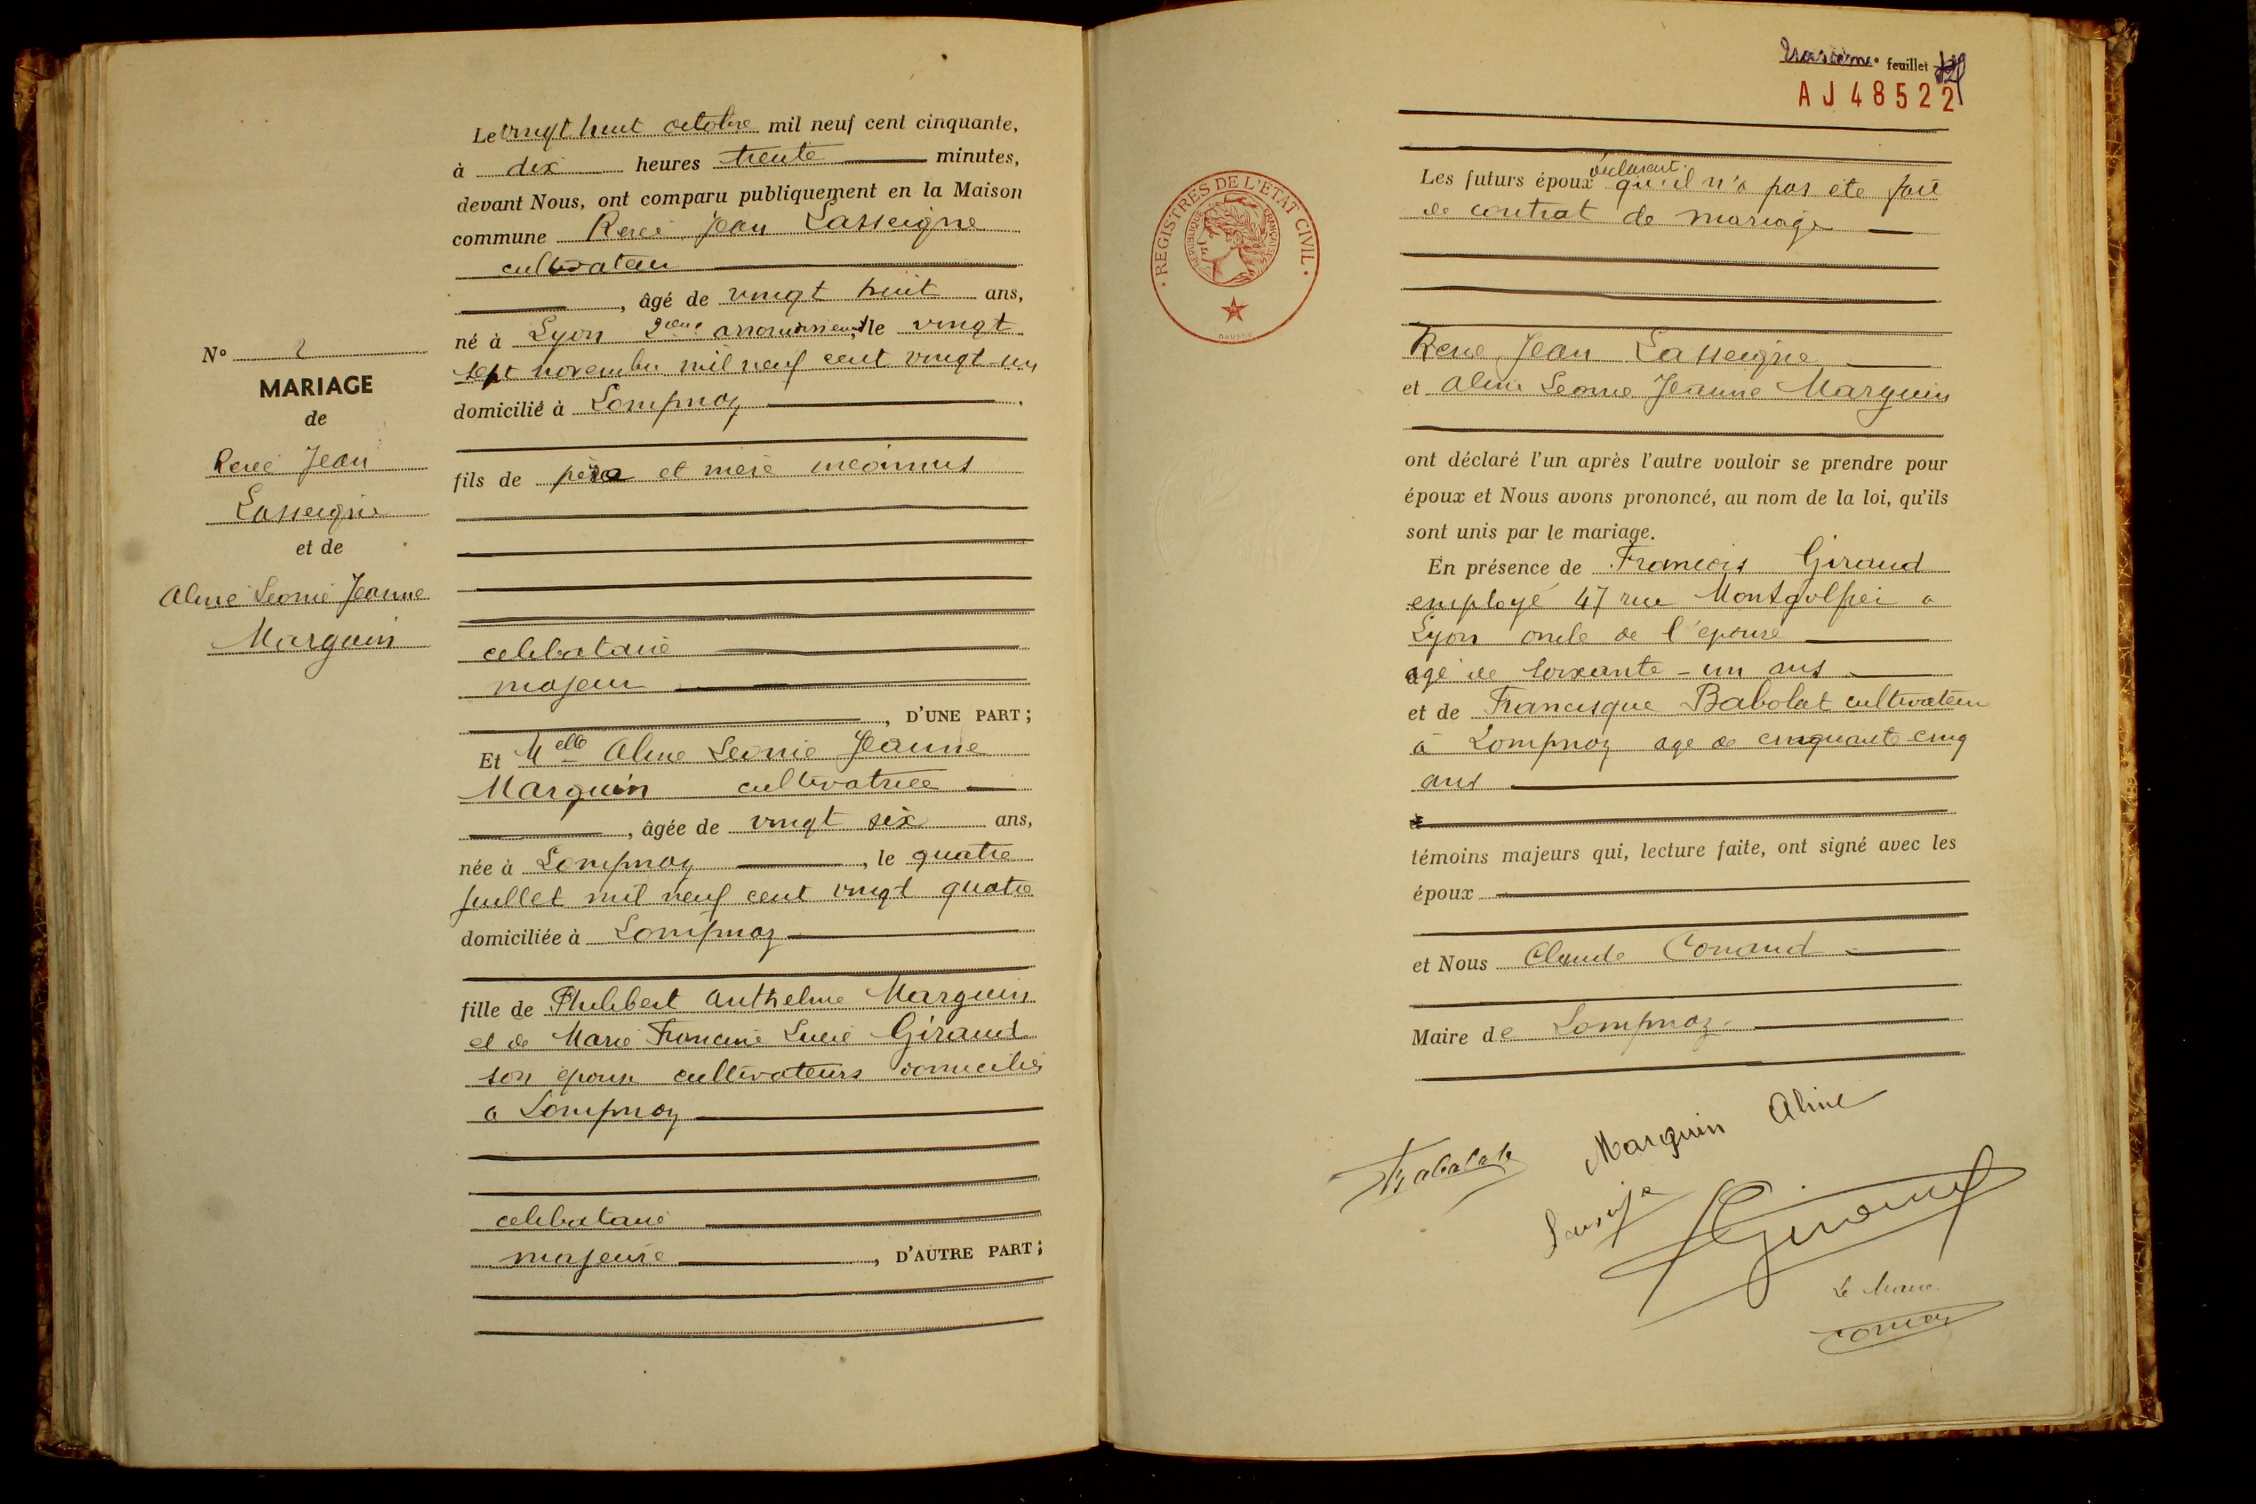 N° 2
MARIAGE
de
René Jean
Lasseigne
et de
Aline Leonie Jeanne
Marguin
Le vingt huit octobre mil neuf cent cinquante,
à dix heures trente minutes,
devant Nous, ont comparu publiquement en la Maison
commune René Jean Lasseigne
cultivateur
, âgé de vingt huit ans,
né à Lyon 2ème arrondissement, le vingt
sept novembre mil neuf cent vingt un
domicilié à Lompnaz .
fils de père et mère inconnus
celibataire
majeur
, D'UNE PART ;
Et Melle Aline Leonie Jeanne
Marguin cultivatrice
, âgée de vingt six ans,
née à Lompnaz , le quatre
juillet mil neuf cent vingt quatre
domiciliée à Lompnaz
fille de Philibert Anthelme Marguin
et de Marie Francine Lucie Giraud
son épouse cultivateurs domiciliés
a Lompnaz
celibataire
majeure , D'AUTRE PART ;
feuillet
AJ 48522
REGISTRES DE L'ETAT CIVIL
REPUBLIQUE FRANÇAISE
déclarent
Les futurs époux qu'il n'a pas été fait
de contrat de mariage
René Jean Lasseigne
et Aline Leonie Jeanne Marguin
ont déclaré l'un après l'autre vouloir se prendre pour
époux et Nous avons prononcé, au nom de la loi, qu'ils
sont unis par le mariage.
En présence de Francois Giraud
employé 47 rue Montgolfier a
Lyon oncle de l'epouse
agé de soixante - un ans
et de Francisque Babolat cultivateur
à Lompnaz age de cinquante cinq
ans
témoins majeurs qui, lecture faite, ont signé avec les
époux
et Nous Claude Conand
Maire de Lompnaz
Marguin Aline
Babolat
Giraud
Le Maire